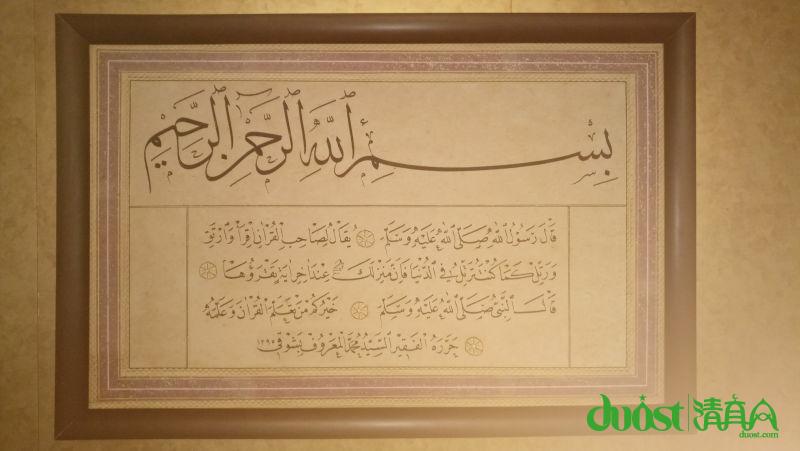 بِسْمِ ٱللَّهِ ٱلرَّحْمٰنِ ٱلرَّحِيمِ
قَالَ رَسُولُ اللَّهِ صَلَّى اللَّهُ عَلَيْهِ وَسَلَّمَ يُقَالُ لِصَاحِبِ الْقُرْاٰنِ اِقْرَأْ وَارْتَقِ
وَرَتِّلْ كَمَا كُنْتَ تُرَتِّلُ فِي الدُّنْيَا فَاِنَّ مَنْزِلَكَ عِنْدَ اٰخِرِ اٰيَةٍ تَقْرَؤُهَا
قَالَ النَّبِيُّ صَلَّى اللَّهُ عَلَيْهِ وَسَلَّمَ خَيْرُكُمْ مَنْ تَعَلَّمَ الْقُرْاٰنَ وَعَلَّمَهُ
حَرَّرَهُ الْفَقِيرُ السَّيِّدُ مُحَمَّدُ الْمَعْرُوفُ بِشَوْقِي ١٢٩٥
duost 清真人
duost.com